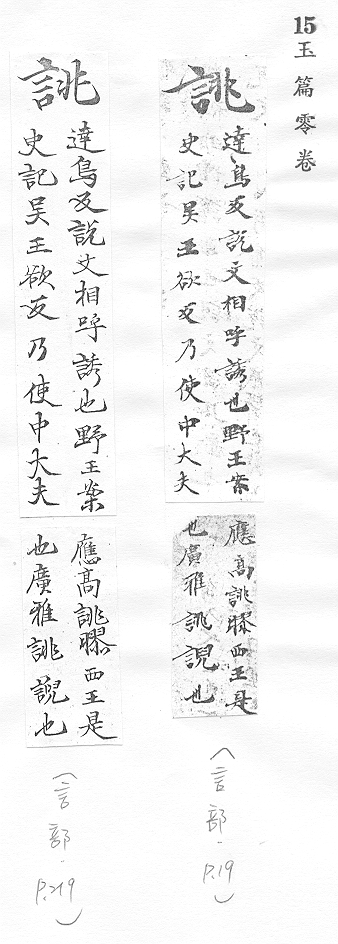 15 玉篇零卷
誂
達鳥反說文相呼誘也野王案
史記吳王欲反乃使中大夫
應高誂膠西王是
也廣雅誂誽也
(言部·P.19)
誂
達鳥反說文相呼誘也野王案
史記吳王欲反乃使中大夫
應高誂膠西王是
也廣雅誂誽也
(言部·P.219)